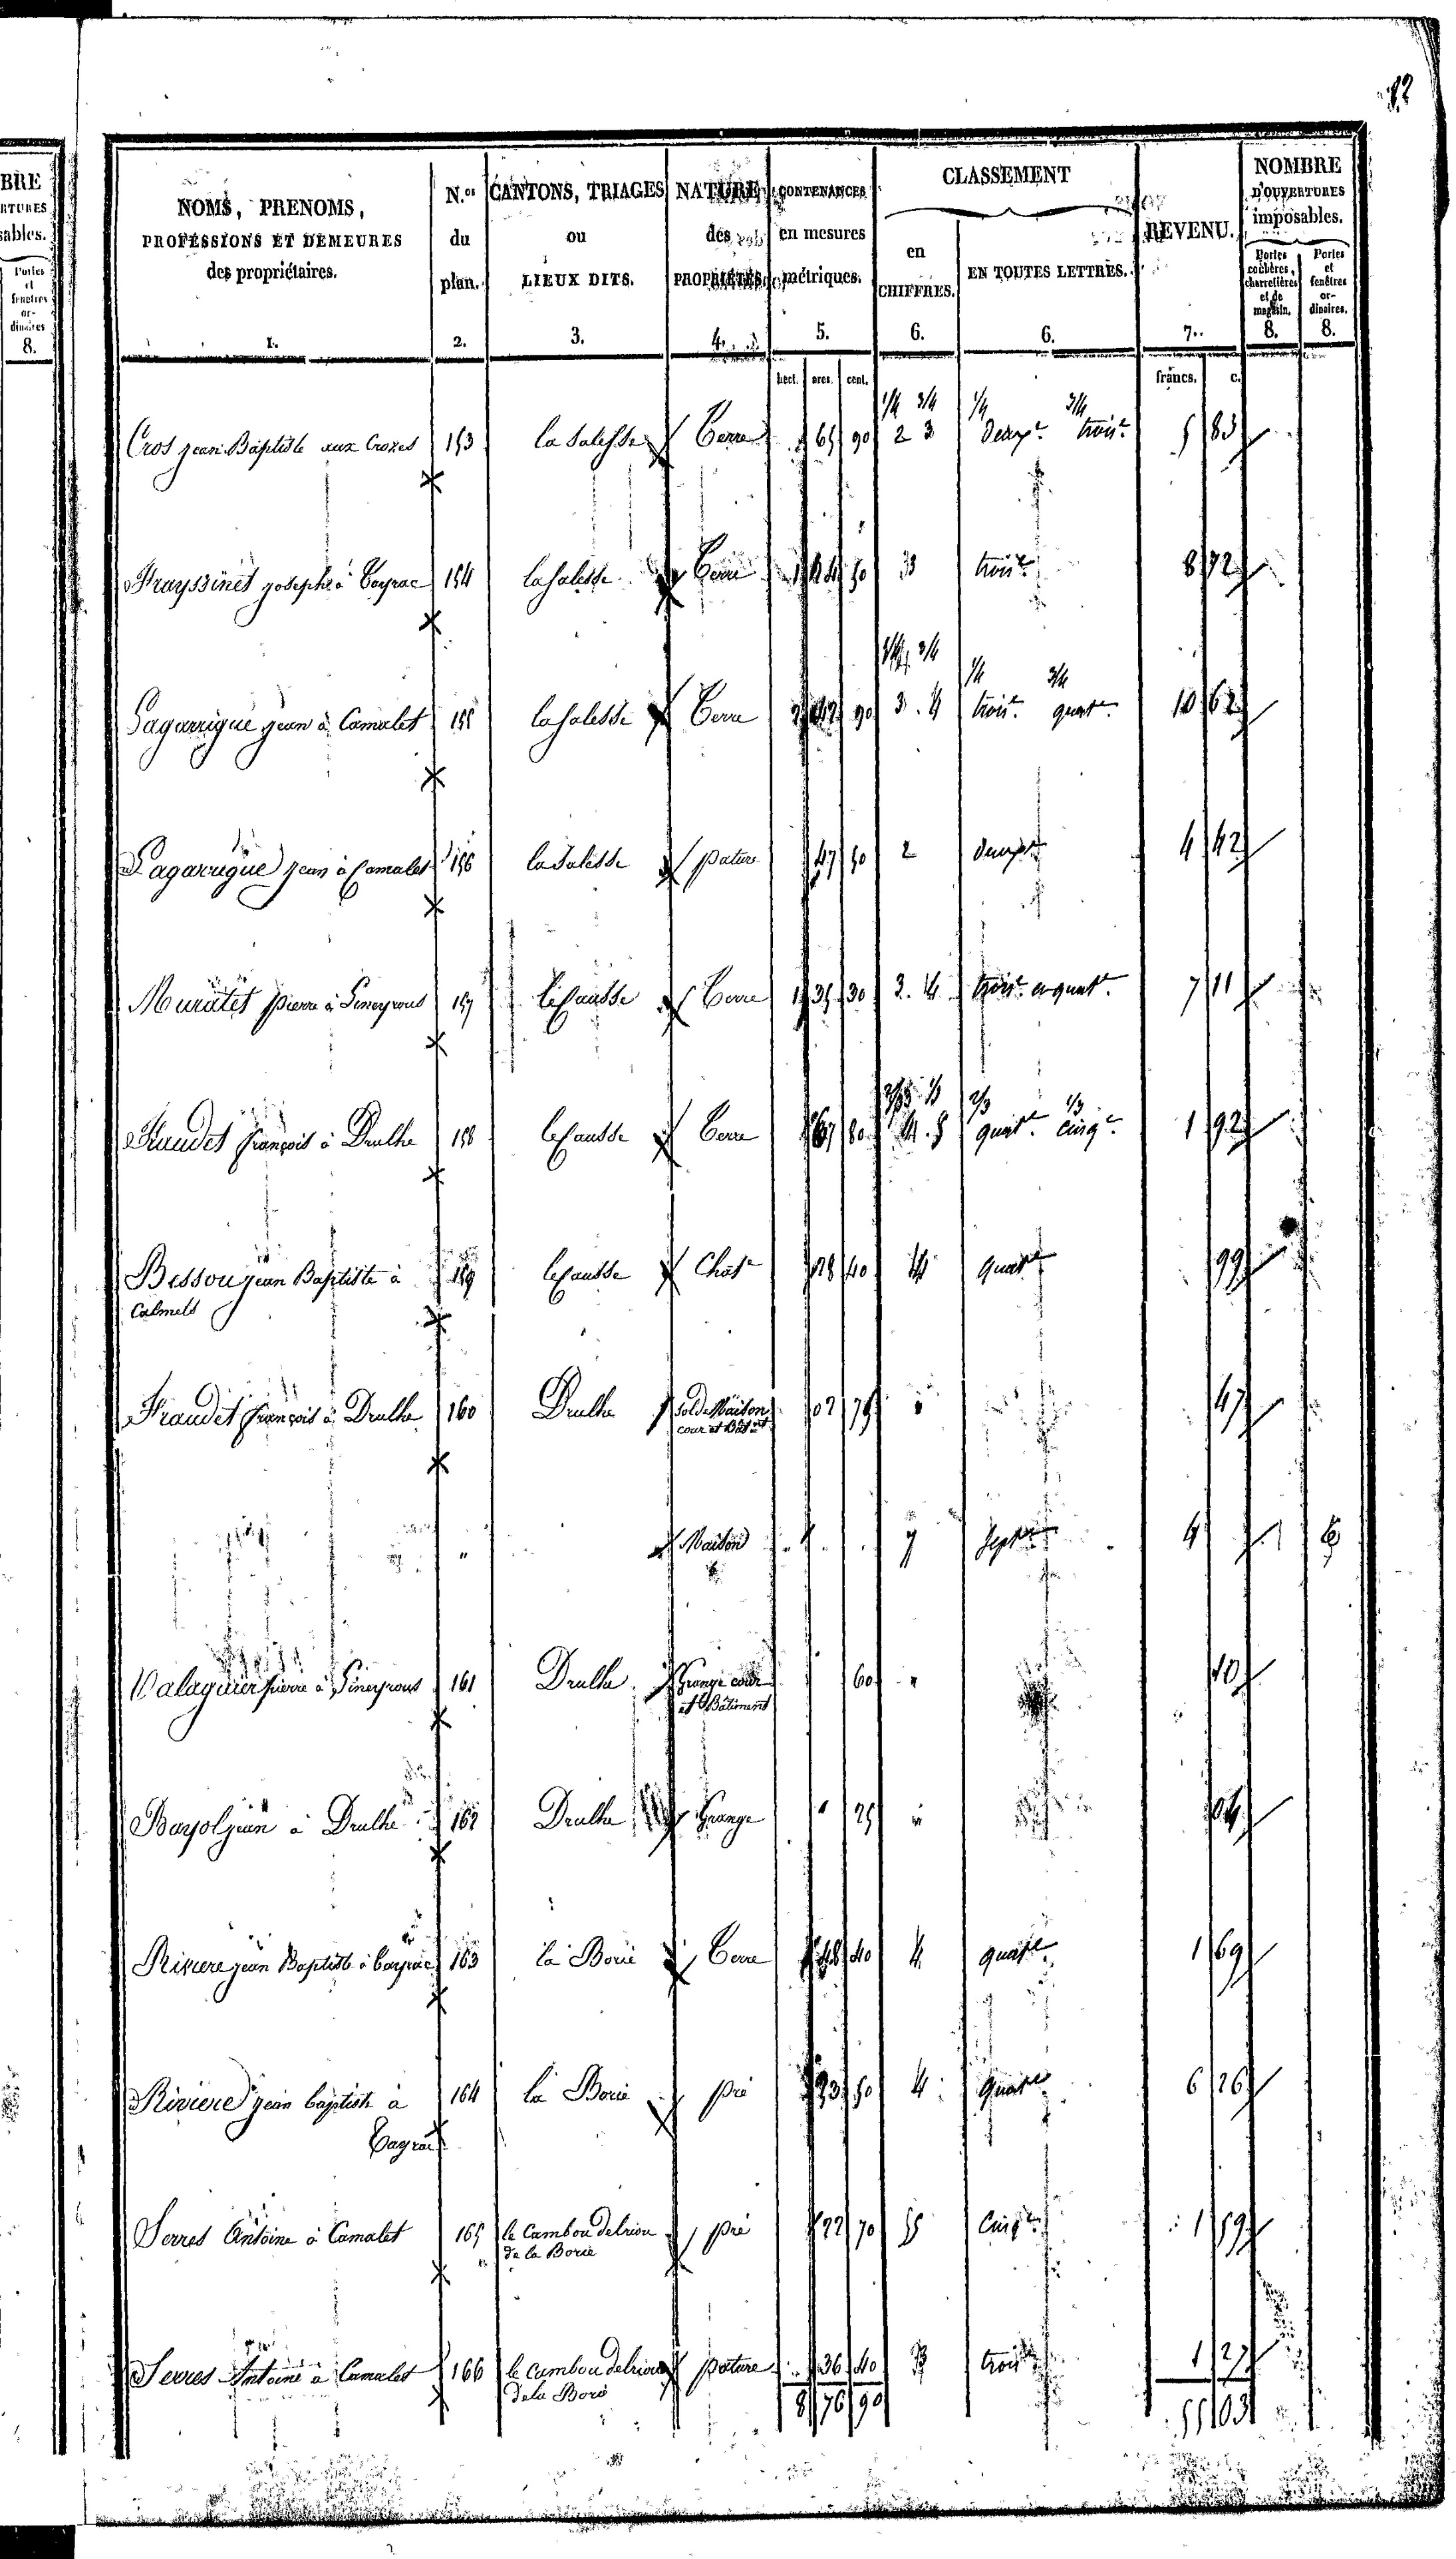 82
BRE
RTURES
sables.
Portes
et
fenêtres
or-
dinaires
8.
NOMS, PRENOMS,
PROFESSIONS ET DEMEURES
des propriétaires.
1.
N.os
du
plan.
2.
CANTONS, TRIAGES
ou
LIEUX DITS.
3.
NATURE
des
PROPRIÉTÉS.
4.
CONTENANCES
en mesures
métriques.
5.
CLASSEMENT
en
CHIFFRES.
6.
EN TOUTES LETTRES.
6.
REVENU.
7.
NOMBRE
D'OUVERTURES
imposables.
Portes
cochères,
charretières
et de
magasin.
8.
Portes
et
fenêtres
or-
dinaires.
8.
hect. ares. cent. francs. c.
1/4 3/4 1/4 3/4
Cros jean Baptiste aux Crozes 153 la Salesse Terre 65 90 2 3 deuxe troise 5 83
Frayssinet joseph à Cayrac 154 la Salesse Terre 50 3 troise 8 72
1/4 3/4 1/4 3/4
Lagarrigue jean à Camalet 155 la Salesse Terre 90 3. 4 troise quate 10 62
Lagarrigue jean à Camalet 156 la Salesse pature 47 50 2 deuxe 4 42
Muratet pierre à Gineyrous 157 le Causse Terre 1 35 30 3. 4 troise et quate 7 11
2/3 1/3 2/3 1/3
Fraudet françois à Drulhe 158 le Causse Terre 67 80 4. 5 quate cinqe 1 92
Bessou jean Baptiste à 159 le Causse Chate 28 40 4 quate 99
Calmels
Fraudet françois à Drulhe 160 Drulhe sol de Maison 02 75 47
cour et Bâtnt
" Maison 7 septe 4 6
Valaguier pierre à Gineyrous 161 Drulhe Grange cour 60 " 10
et Bâtiment
Bayol jean à Drulhe 162 Drulhe Grange 25 " 04
Riviere jean Baptiste à Cayrac 163 la Borie Terre 48 40 4 quate 1 69
Riviere jean baptiste à 164 la Borie pré 50 4 quate 6 26
Cayrac
Serres Antoine à Camalet 165 le Cambou del riou pré 22 70 5 Cinqe 1 59
de la Borie
Serres Antoine à Camalet 166 le cambou del riou pature 36 40 3 troise 1 27
de la Borie
8 76 90 55 03